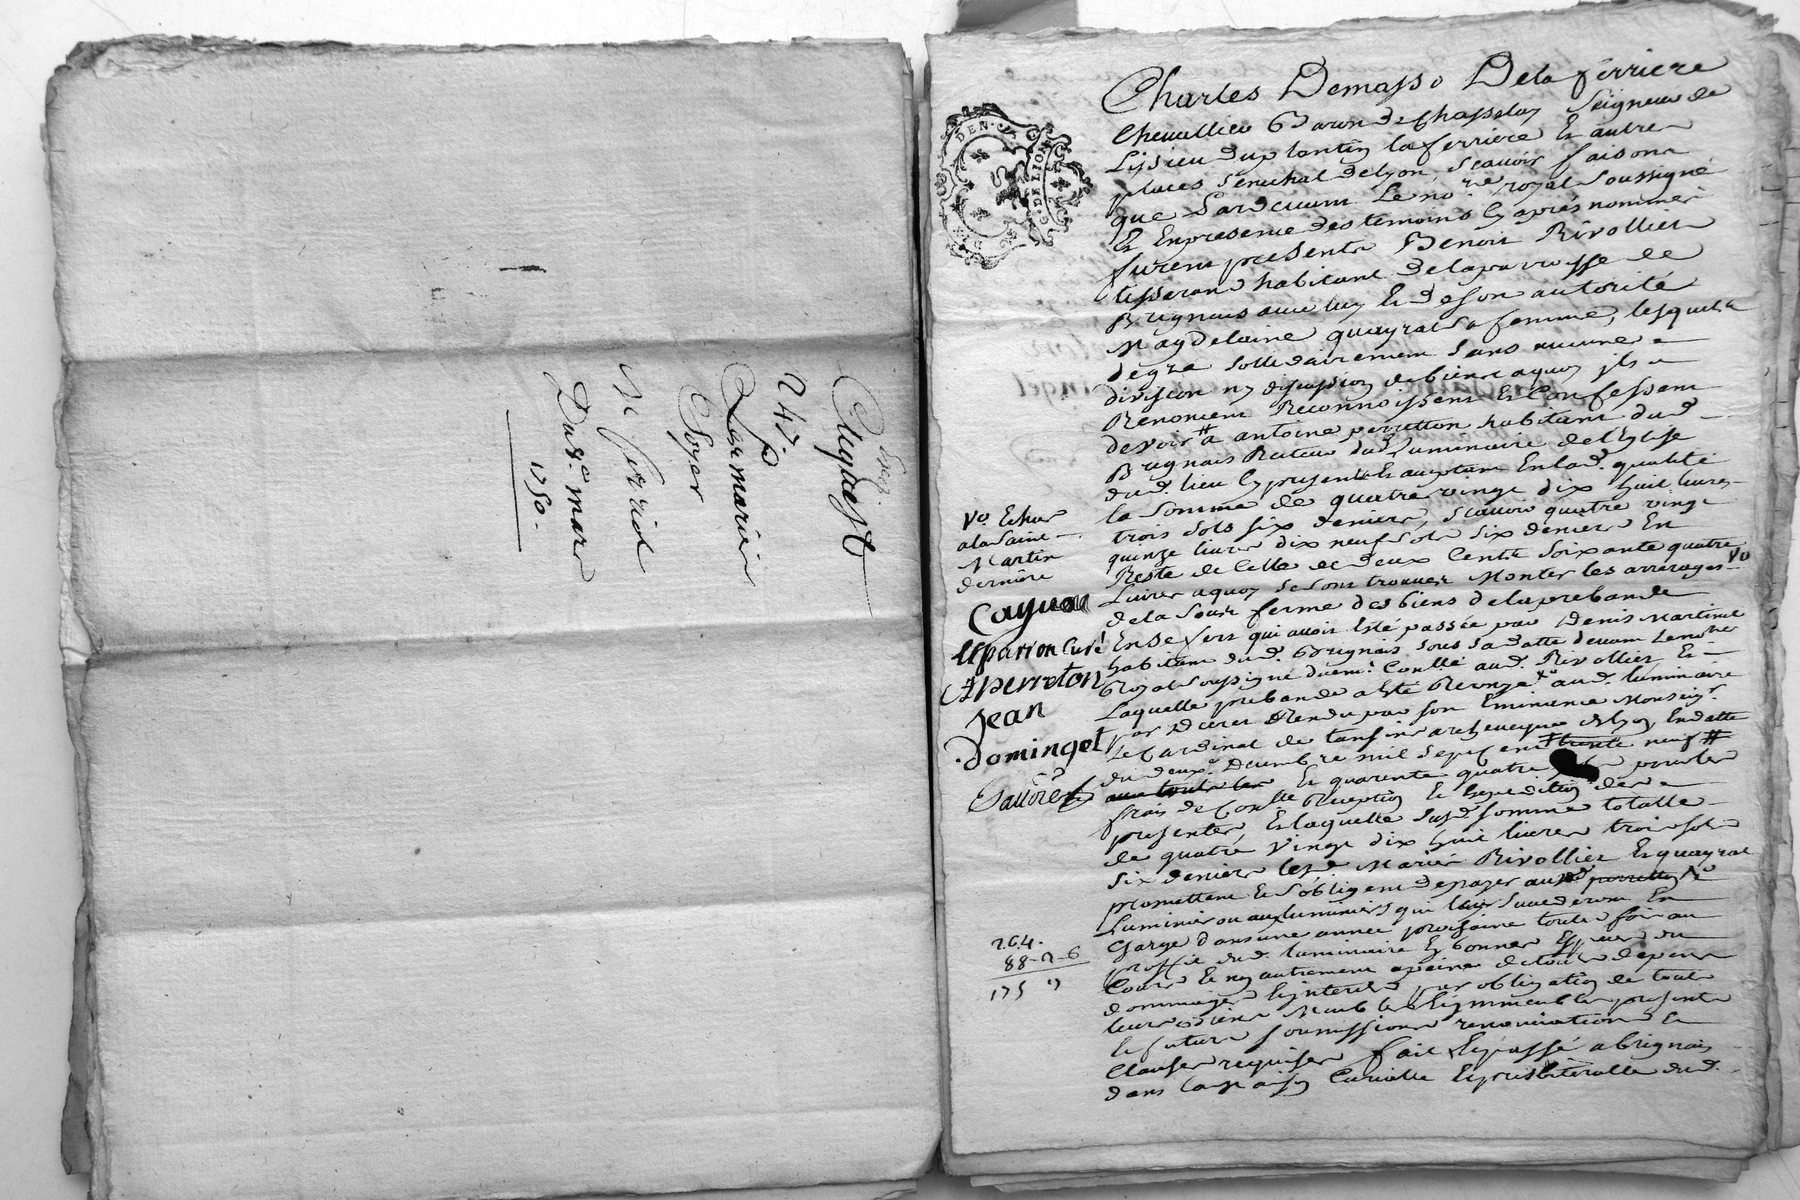 Exp.
247
Soyer
Du 8e mars
1750.
DEN.
G. D. DE LION
Charles Demasso Dela ferriere
Chevallier Baron de Chasselay Seigneur de
Lissieu du plantin la ferriere Et autres
places Senechal de lyon, scavoir faisons
que Pardevant Le no.re royal Soussigné
Et En presence des temoins Cy aprés nommés
furent presents Benoit Rivollier
tisserand habitant de la parroisse de
Brignais avec luy Et de son autorité
Magdelaine quayrat Sa femme, lesquels
de gré sollidairement Sans aucune
division ny discussion de biens a quoy ils
Renoncent Reconnoissent Et Confessent
devoir # a antoine perretton habitant dud.
Brignais Recteur du Luminaire de l'Eglise
dud. lieu Cy present Et acceptant En lad. qualité
la Somme de quatre vingt dix huit livres
trois sols six deniers, scavoir quatre vingt
quinze livres dix neuf sols six deniers En
Reste de Celle de deux Cents Soixante quatre
Livres a quoy se sont trouvez Monter les arrerages Vo
de la Sous ferme des biens de la prebande
En de vers qui avoit Esté passée par Denis Martinet
habitant dud. Brignais sous sa datte devant Le no.re
Royal Soussigné duem.t Conllé aud. Rivollier Et
Laquelle prebande a Esté Reunye aud. luminaire
par Decret Rendu par Son Eminence Monseig.r
Le Cardinal de tansin archeveque de lyon, En datte
du deux.e Decembre mil sept cent trente neuf #
Et quarente quatre pour les
frais de Conlle Reception Et Expedition des
presentes, Et laquelle susd. somme totalle
de quatre Vingt dix huit livres trois sols
six deniers lesd. Mariés Rivollier Et quayrat
promettent Et s'obligent de payer aud. perretton Vo
Luminier ou aux luminiers qui luy succederont En
Charge dans une année prochaine toute fois au
proffit dud. luminaire Et bonnes Especes du
Cours Et non autrement a peine de tous depens
dommages Et interets par obligation de tous
leurs biens Meubles Et immeubles presents
Et futurs soumissions renonciations Et
Clauses requises fait Et passé a brignais
dans la maison Curialle Et presbiteralle dud.
Vo Echus
a la Saint
Martin
derniere
Cayron
Lepassion Curé
A perreton
Jean
domingot
264.
88-0-6
175 "